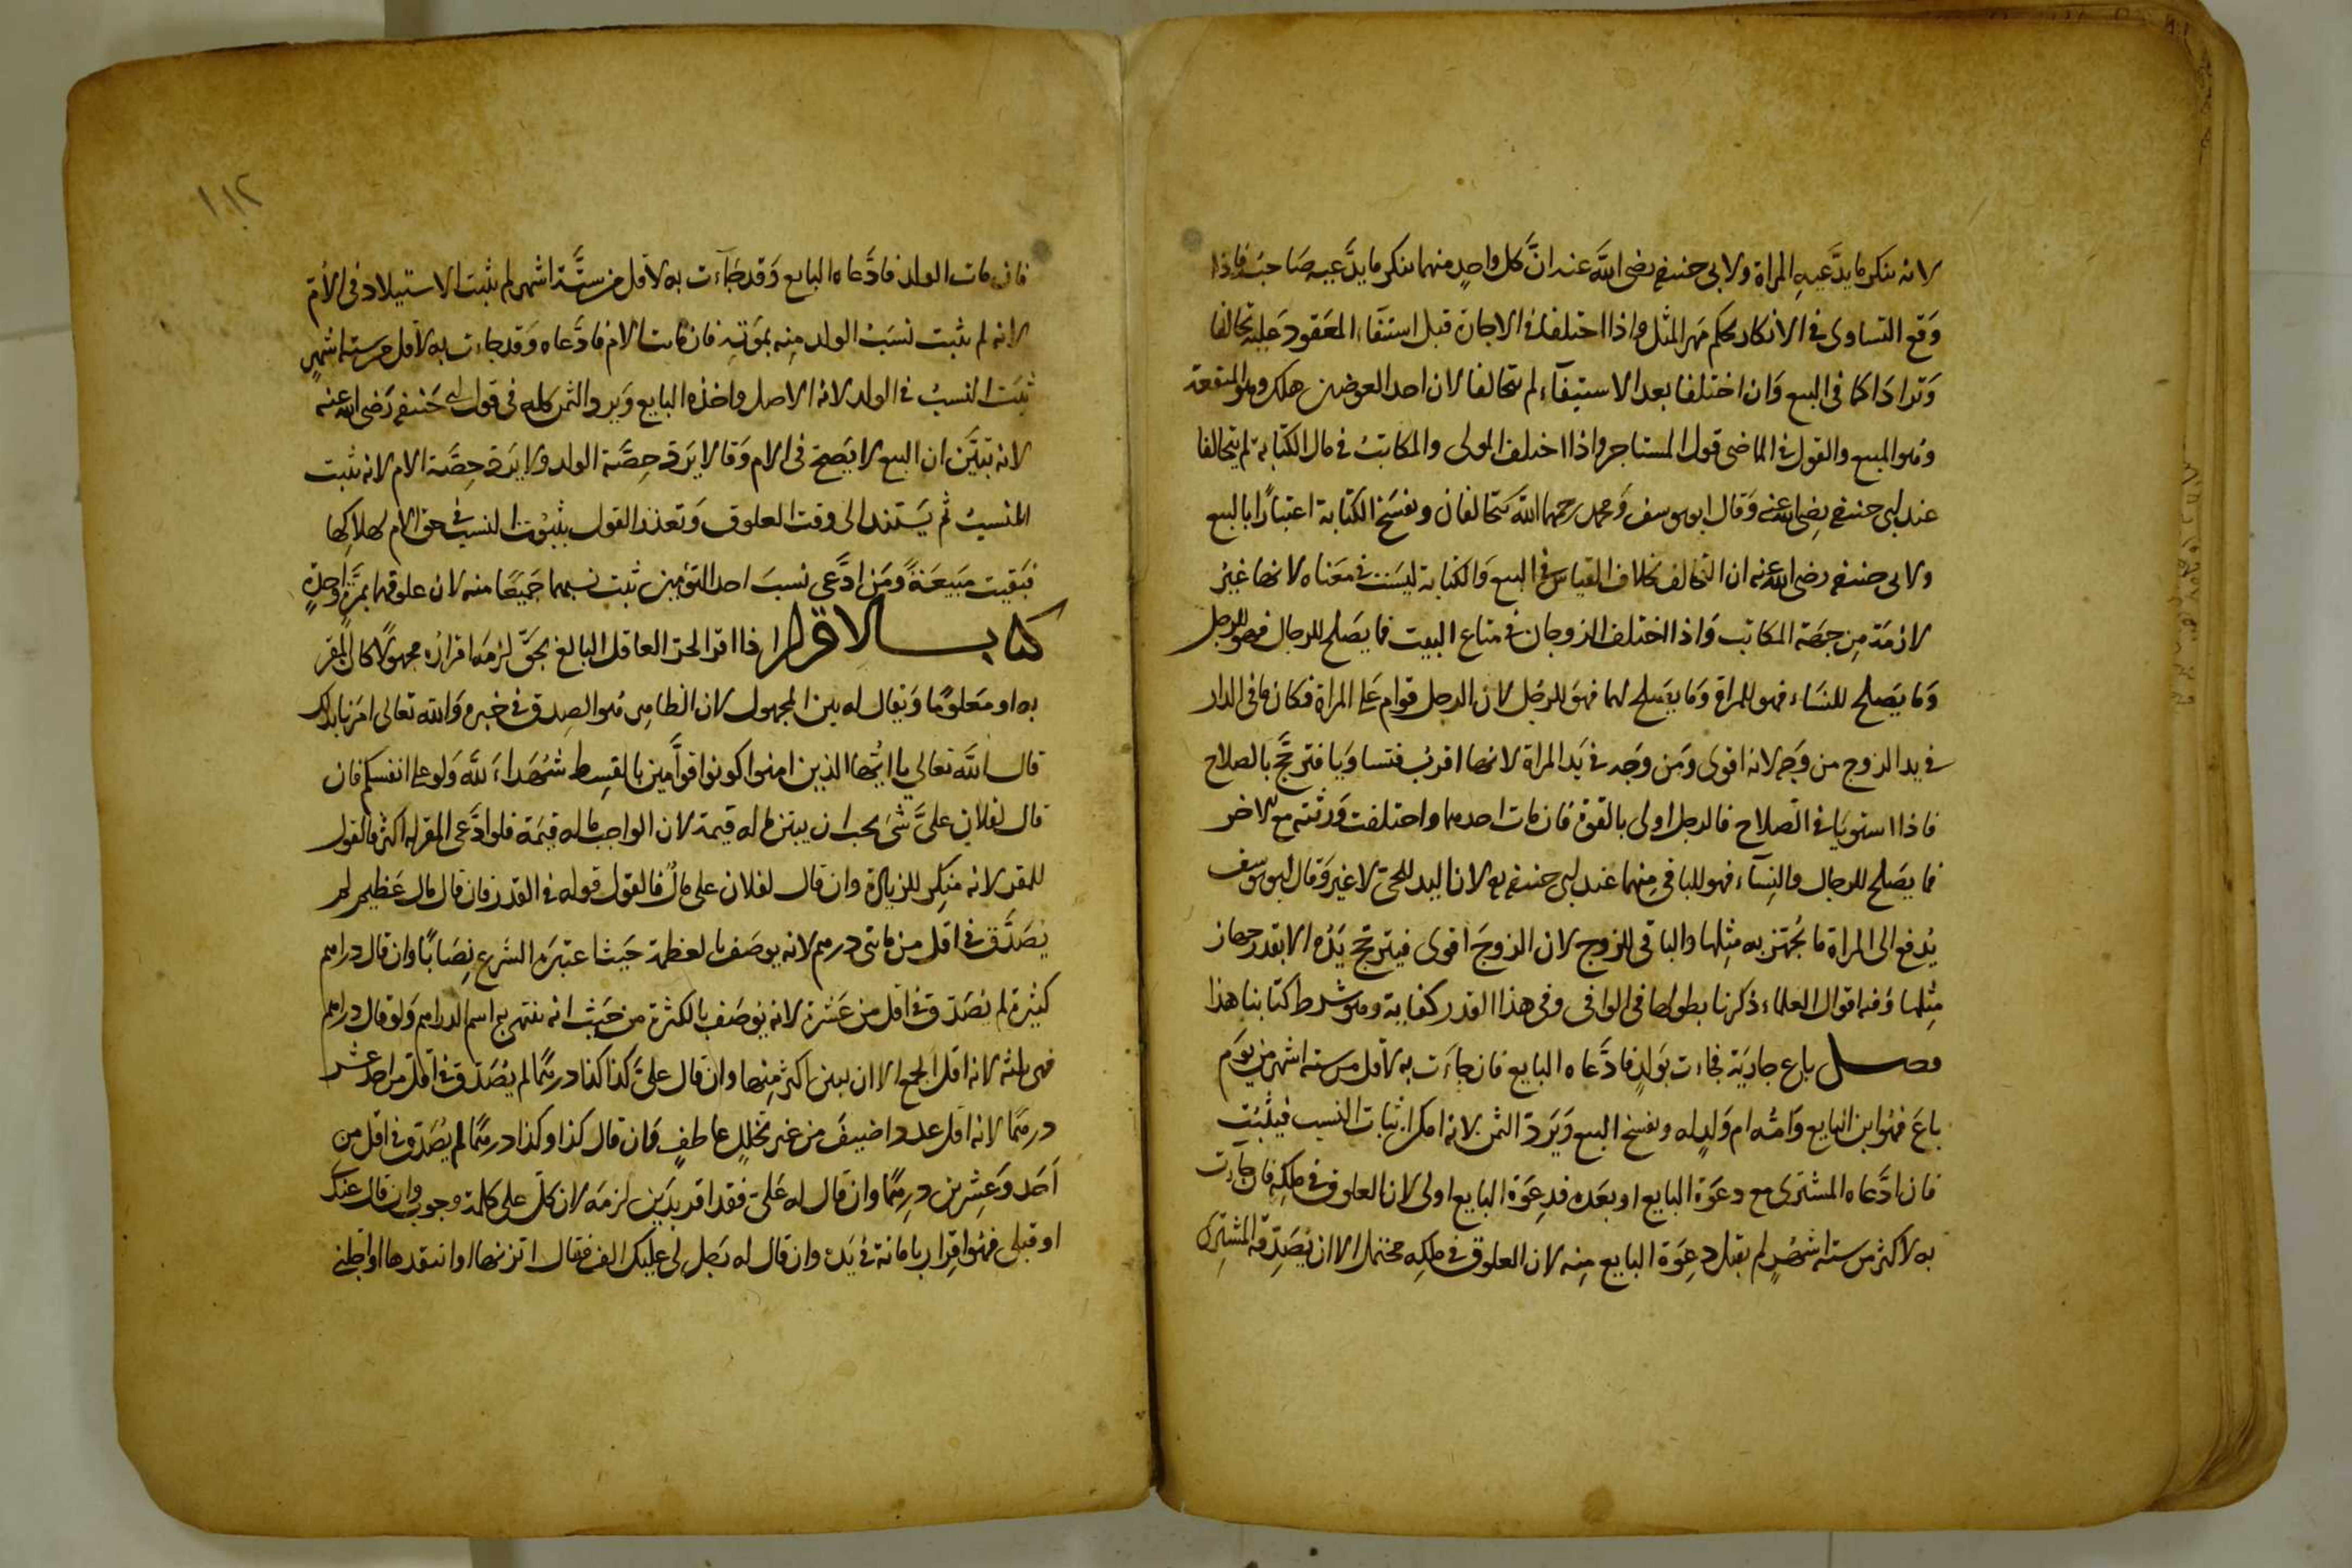 لانه ينكر ما يدَّعيهِ المراة ولابى حنيفه رضى اللَّه عنه انَّ كل واحدٍ منهما ينكر ما يدَّعيه صَاحبُه فاذا
وَقع التساوى فى الانكار يحكم مَهر المثل واذا اختلفا فى الاجارة قبل استيفاء المعَقود عَليه تحالفا
وَترادا كما فى البيع وَان اختلفا بعد الاستيفآء لم يتحالفا لان احد العوضين هلك وهو المنفعة
وهُو المبيع والقول فى الماضى قول المستاجر واذا اختلف المولى والمكاتبُ فى مال الكتابة لم يتحالفا
عند ابى حنيفه رضى الله عنه وَقال ابو يوسف وَمحمد رحمهما اللَّه يتحالفان وتفسَخ الكتابة اعتبارًا بالبيع
ولابى حنيفه رضى الله عنه ان التحالف بخلاف القياس فى البيع وَالكتابة ليسَت فى معَناه لانها غيرُ
لازمَة مِن جهَة المكاتب وَاذا اختلف الزوجان فى متاع البيت فما يصَلح للرجال فهو للرجل
وَما يَصلح للنسَاء فهو للمراة وَما يصَلح لهما فهوَ للرجُل لان الرجل قوام عَلى المراة فكان ما فى الدار
فى يد الزوج من وَجه لانه اقوى وَمن وَجه فى يَد المراة لانها اقربُ فتساويَا فترجَّح بالصلاح
فاذا استويَا فى الصّلاح فالرجل اولى بالقوة فان مات احدهما واختلفت وَرثته مع الاخر
فما يصَلح للرجال والنِسآء فهو للباقى مِنهما عند ابى حنيفه لان اليد للحىّ لا غيرُ وَقال ابو يوسف
يُدفع الى المراة ما يُجهز به مِثلها والباقى للزوج لان الزوجَ اقوى فيترجّح يَدُه الا بقدر جهاز
مِثلها وَفيه اقوال العلماء ذكرنا بطولها فى الوافى وفى هذا القدر كفاية وهو شرط كتابنا هذا
فصــل باع جاريَة فجاءت بوَلدٍ فادَّعاه البايع فان جاءَت به لاقل من ستة اشهر من يوَم
باعَ فهُوا بن البايع وَامُّه ام وَلدٍ له ويفسَخ البيع وَيَردّ الثمن لانه امكن اثبات النسب فيثبُت
فان ادَّعاه المشترى مع دعوَة البايع او بعَده فدِعوَة البايع اولى لان العلوق فى ملكِه فان جاءت
به لاكثر من ستة اشهُرٍ لم يقبل دعِوَة البايع مِنه لان العلوق فى ملكِه محتمل الا ان يُصَدِّقه المشترِى
فان مات الولد فادَّعاه البايع وَقد جَآءت به لاقل من ستَّة اشهر لم يثبت الاستيلاد فى الأمّ
لانه لم يثبت نسَبُ الولد مِنه بموَته فان ماتت الام فادَّعاه وَقد جاءت به لاقل من ستة اشهرٍ
ثبَت النسبُ فى الولد لانه الاصل واخذه البايع وَيرد الثمن كله فى قول ابى حَنيفه رَضى الله عنه
لانه تبَيَّن ان البيع لا يَصحّ فى الام وَقالا يَردّ حِصَّة الولد ولا يَردّ حِصَّة الام لانه يثبت
النسبُ ثُم يَستند الى وقت العلوق وَتعذر القول بثبُوت النسب فى حق الام لهلاكِها
فبَقيت مَبيعَةً وَمَن ادَّعى نسبَ احد التؤمين ثبت نسبهما جَميعًا منه لان علوقهما بمرَّةٍ واحِدَةٍ
كتابــ الاقرار اذا اقرّ الحرّ العاقل البالغ بحَقّ لزمَه اقرارُه مجهولاً كان المُقر
به او مَعلومًا وَيقال له بين المجهول لان الظاهر هُو الصِدق فى خبره وَالله تعالى امَرنا بذلك
قال اللَّه تعالى يا ايُّها الذين امنوا كونوا قوَّامين بالقِسط شُهَداءَ للَّه وَلو على انفسكم فان
قال لفلانٍ علىَّ شىَ يجب ان يبَين ما له قيمة لان الواجب ما له قيمَة فلو ادَّعى المقر له اكثر فالقول
للمقر لانه منِكر للزيادة وان قال لفلان على مالٌ فالقول قوله فى القدر فان قال مال عَظيم لم
يُصَدَّق فى اقل من مائتى درهم لانه يوصَف بالعظمة حَيث اعتبرَه الشَرع نِصَابًا وان قال دراهم
كثيرة لم يُصَدّق فى اقل من عَشرة لانه يوُصَف بالكثرة من حَيث انه ينتهى به اسم الدراهم وَلو قال دراهم
فهى ثلثة لانه اقل الجمع الا ان يبين اكثر مِنها وان قال علىَّ كذا كذا درهمًا لم يُصَدّق فى اقل من احد عشر
درهمًا لانه اقل عدد اضيفَ من غير تخللِ عاطفٍ فَان قال كذا وكذا درهمًا لم يُصَدّق فى اقل من
اَحَد وَعِشرين درهمًا وان قال له عَلىّ فقد اقر بدَين لزمَه لان كلّ على كلمة وجوب وان قال عندى
او قبلى فهُوا قِرار بامانة فى يَده وان قال له رَجل لى عليك الف فقال اتزنها او انتقدها او اجلنى
١١٢